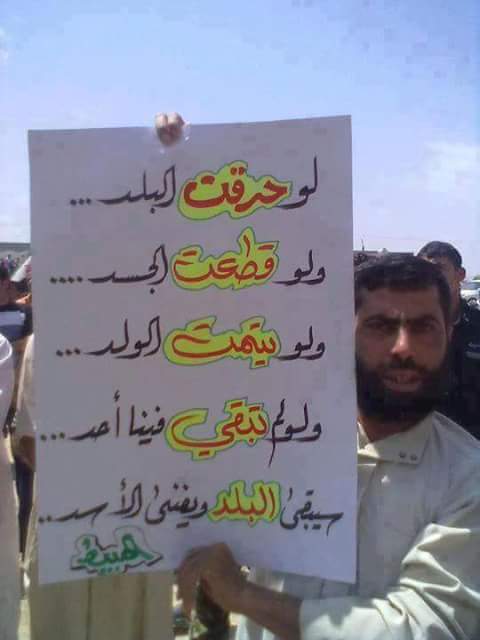 لو حرقت البلد ...
ولو قطعت الجسد ....
ولو يتمت الولد ...
ولو لم تبقي فينا أحد ...
سيبقى البلد ويفنى الأسد ..